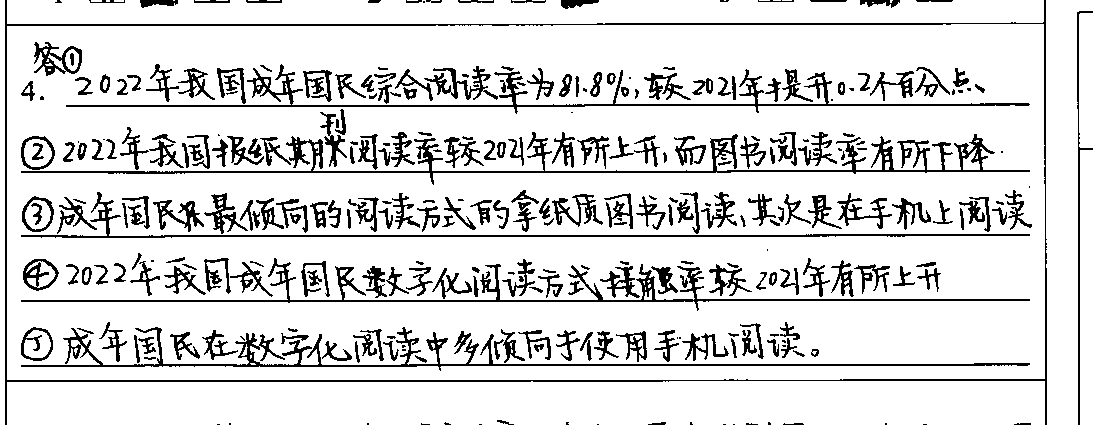 答①
4. 2022年我国成年国民综合阅读率为81.8%,较2021年提升0.2个百分点、
②2022年我国报纸期刊阅读率较2021年有所上升,而图书阅读率有所下降.
③成年国民最倾向的阅读方式的拿纸质图书阅读,其次是在手机上阅读
④2022年我国成年国民数字化阅读方式接触率较2021年有所上升
⑤成年国民在数字化阅读中多倾向于使用手机阅读。